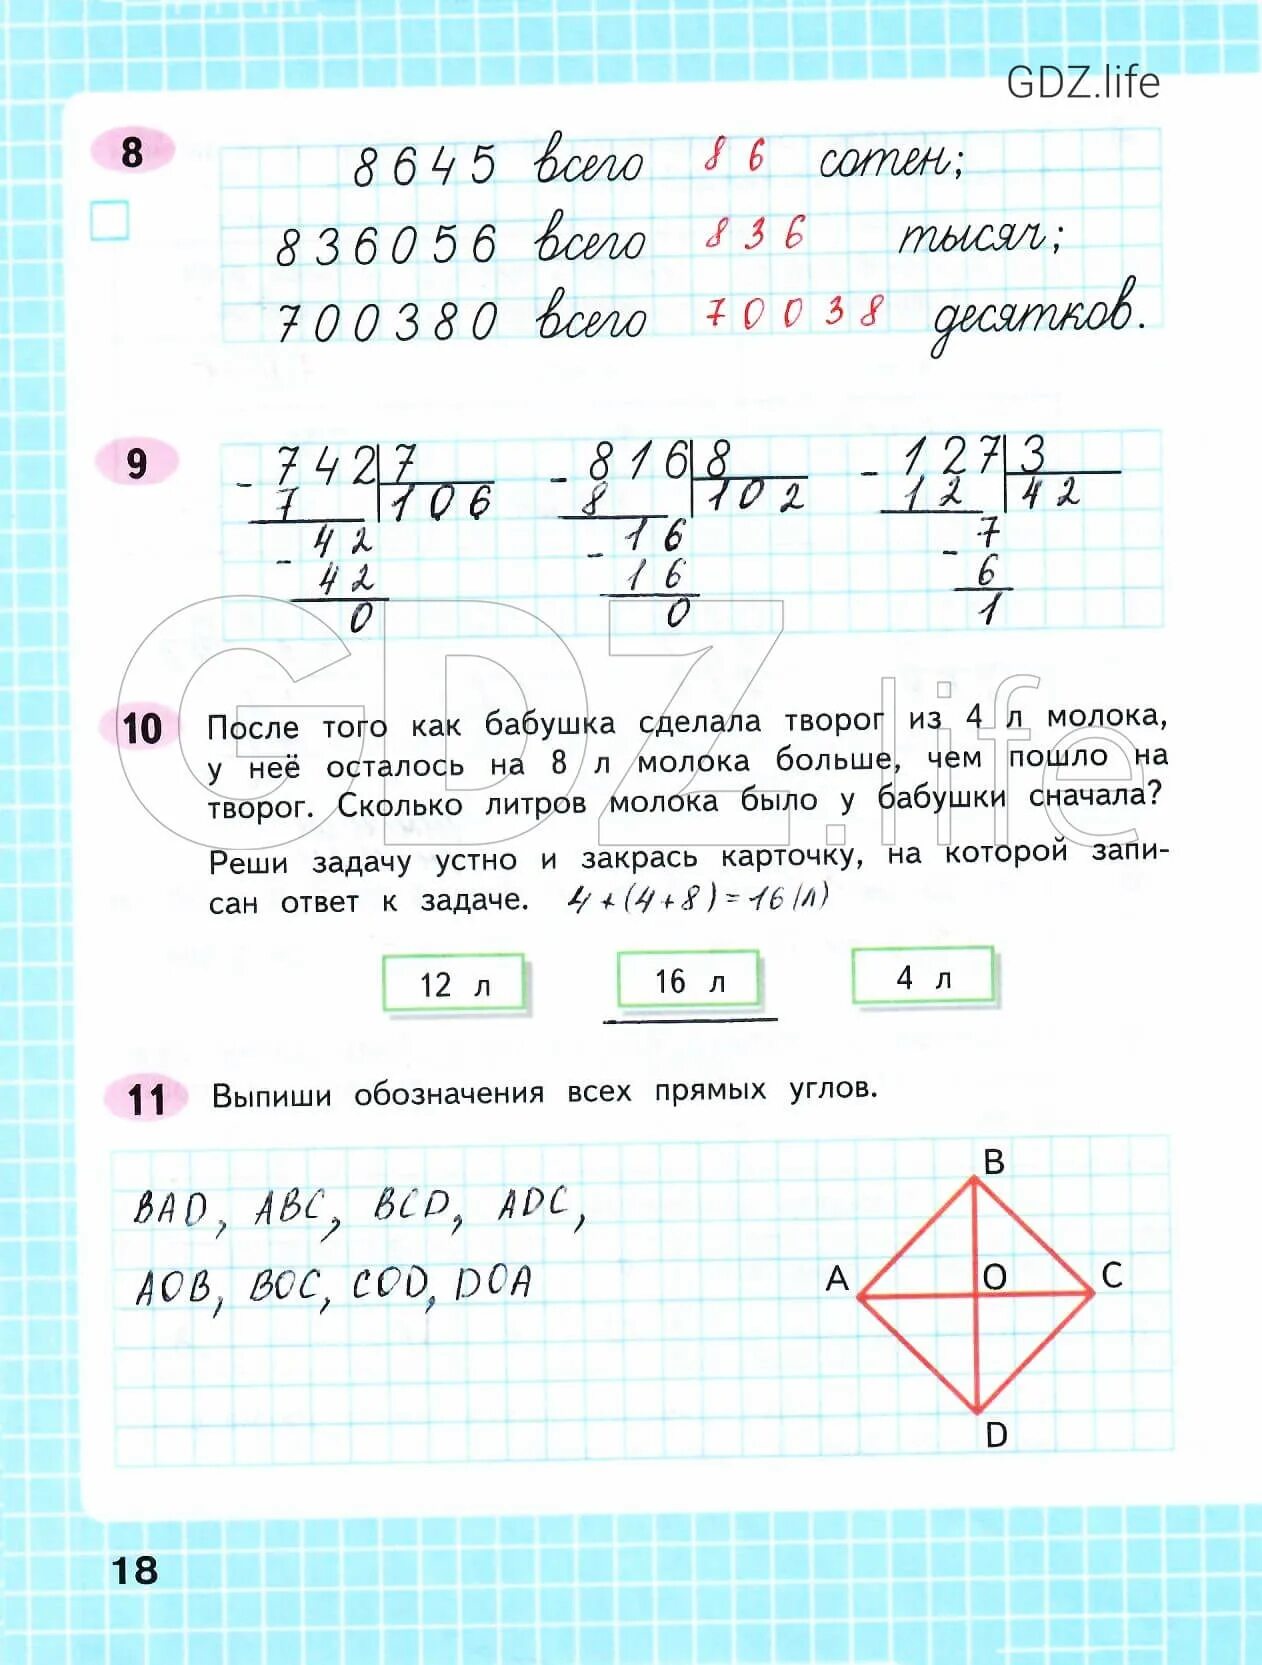 GDZ.life
8
8645 всего 86 сотен;
836056 всего 836 тысяч;
700380 всего 70038 десятков.
9
- 742 7 - 816 8 - 127 3
7 106 8 102 12 42
- 42 - 16 - 7
42 16 6
0 0 1
GDZ.life
10 После того как бабушка сделала творог из 4 л молока,
у неё осталось на 8 л молока больше, чем пошло на
творог. Сколько литров молока было у бабушки сначала?
Реши задачу устно и закрась карточку, на которой запи-
сан ответ к задаче. 4+(4+8)=16(л)
12 л 16 л 4 л
11 Выпиши обозначения всех прямых углов.
BAD, ABC, BCD, ADC,
AOB, BOC, COD, DOA
B
A O C
D
18